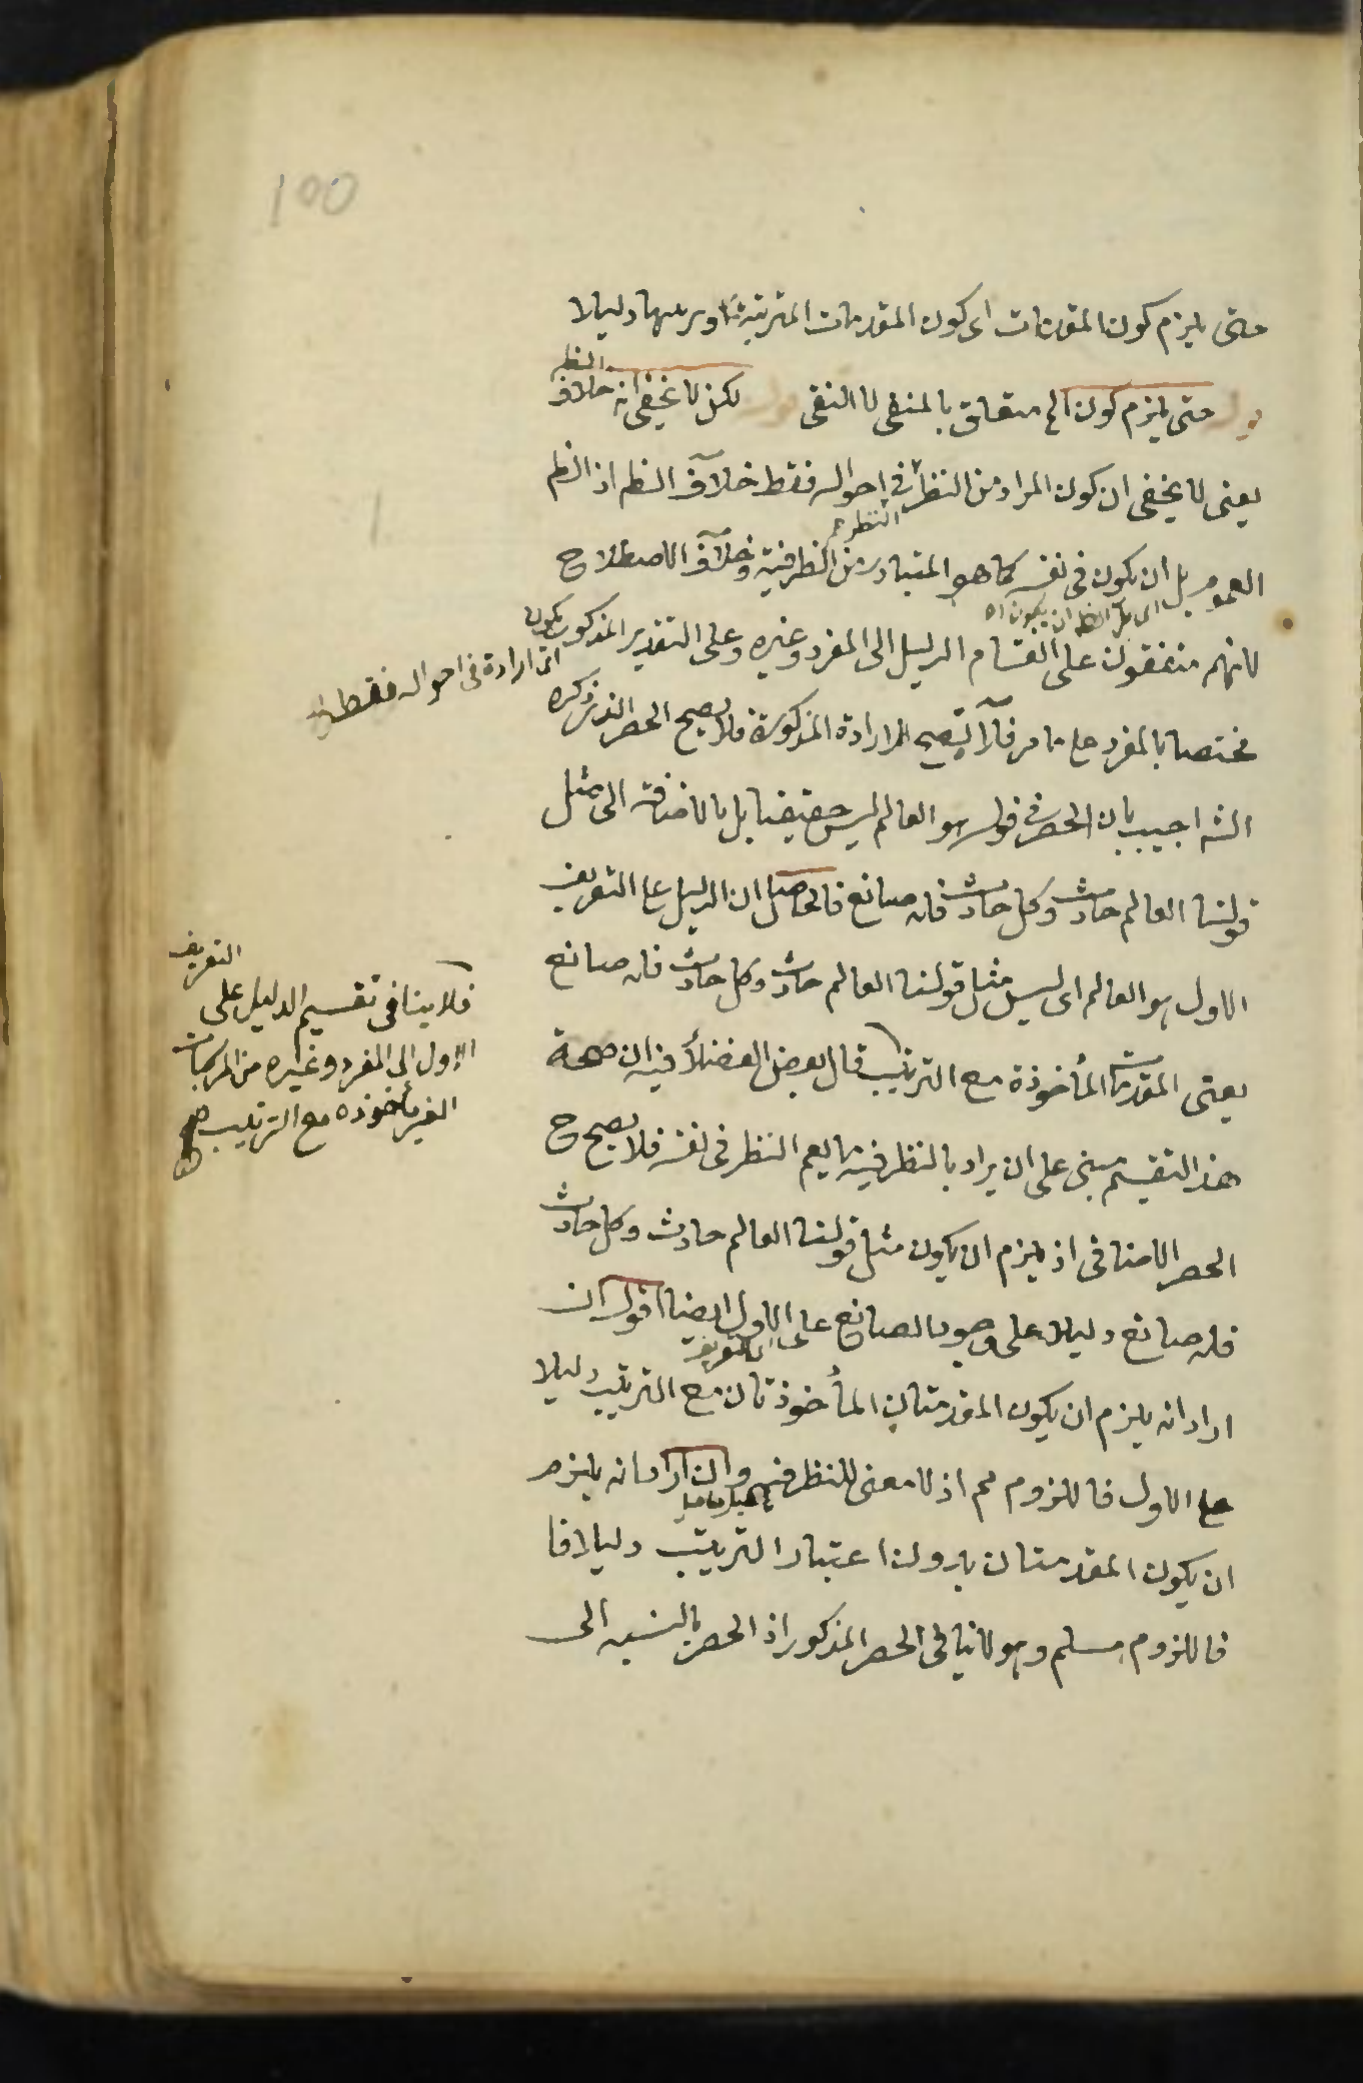 100
حتى يلزم كون المقدمات اى كون المقدمات المترتبة دليلا
حتى يلزم كون الخ متعلق بالمنفى لا النفى لكن لا يخفى انه خلاف الظ
يعنى لا يخفى ان كون المراد من النظر فى احواله فقط خلاف الظ اذ الظ
النظر
العموم بل ان يكون فى نفسه كما هو المتبادر من النظر فيه وخلاف الاصطلاح
اى بل الظ ان يكون اه
لانهم متفقون على انقسام الدليل الى المفرد وغيره وعلى التقدير المذكور يكون
اى ارادة فى احواله فقط
مختصا بالمفرد على ما مر فلا تصح الارادة المذكورة فلا يصح الحصر الذى ذكره
الش اجيب بان الحصر فى قوله هو العالم ليس حقيقيا بل بالاضافة الى مثل
قولنا العالم حادث وكل حادث فله صانع فالحاصل ان الدليل على التعريف
الاول هو العالم اى ليس مثل قولنا العالم حادث وكل حادث فله صانع
يعنى المقدمات المأخوذة مع الترتيب قال بعض الفضلاء فيه ان صحة
هذا التقسيم مبنى على ان يراد بالنظر فيه ما يعم النظر فى نفسه فلا يصح ح
الحصر الاضافى اذ يلزم ان يكون مثل قولنا العالم حادث وكل حادث
فله صانع دليلا على وجود الصانع على الاول ايضا اقول ان
التعريف
اراد انه يلزم ان يكون المقدمتان المأخوذتان مع الترتيب دليلا
على الاول فاللزوم مم اذ لا معنى للنظر فيه وان اراد انه يلزم
ان يكون المقدمتان بدون اعتبار الترتيب دليلا فا
فاللزوم مسلم وهو لا ينافى الحصر المذكور اذ الحصر بالنسبه الى
فلا ينافى تقسيم الدليل على التعريف
الاول الى المفرد وغيره من المركبات
الغير مأخوذه مع الترتيب